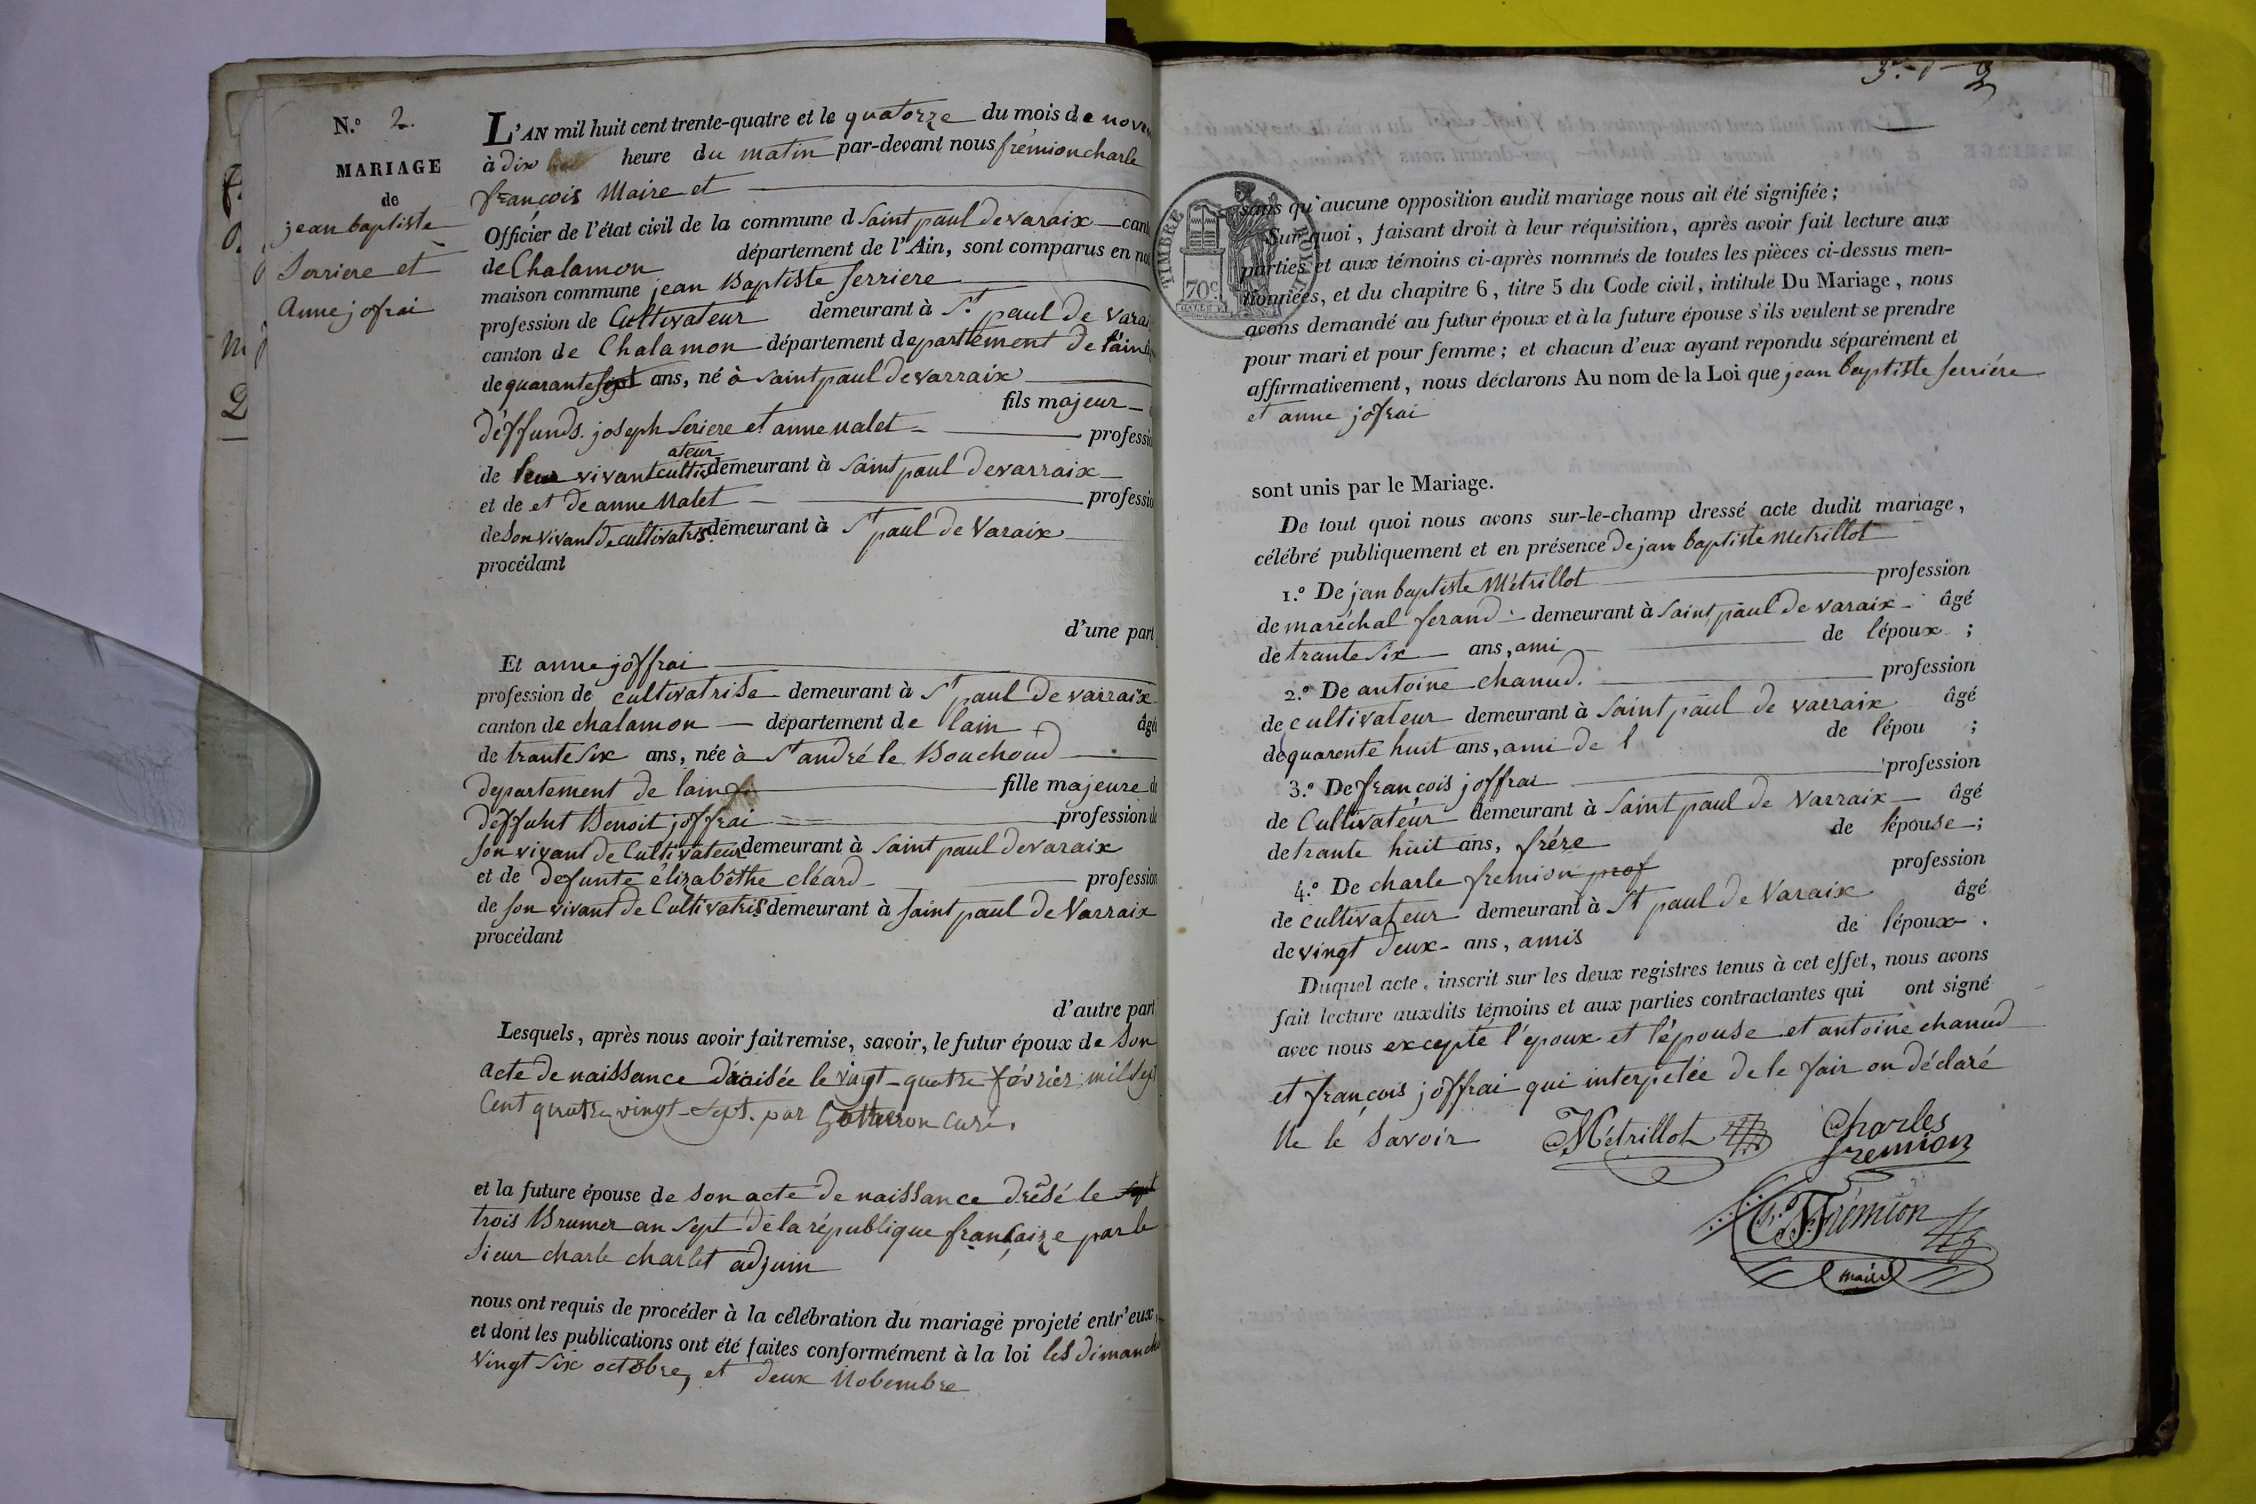 N.º 2.
MARIAGE
de
jean baptiste
Serriere et
Anne jofrai
L'AN mil huit cent trente-quatre et le quatorze du mois de novem
à dix heure du matin par-devant nous frémion charle
françois Maire et
Officier de l'état civil de la commune d saint paul de varaix cant
de Chalamon département de l'Ain, sont comparus en no
maison commune jean Baptiste ferriere
profession de Cultivateur demeurant à St. paul de Varai
canton de Chalamon département departtement de l'ain
de quarante sept ans, né à saint paul de varraix
fils majeur
déffunds. joseph Seriere et anne nalet professio
de leur vivant cultivateur demeurant à saint paul de varraix
et de et de anne Nalet professio
de son vivant de cultivatris demeurant à St paul de Varaix
procédant
d'une part
Et anne joffrai
profession de cultivatrise demeurant à St paul de varraix
canton de chalamon département de lain âgé
de trante six ans, née à St andré le Bouchoud
departement de lain fille majeure de
deffunt Benoit joffrai profession de
son vivant de Cultivateur demeurant à saint paul de varaix
et de defunte élizabéthe cléard profession
de son vivant de Cultivatris demeurant à saint paul de Varraix
procédant
d'autre part
Lesquels, après nous avoir fait remise, savoir, le futur époux de son
acte de naissance le vingt-quatre février mil sept
Cent quatre vingt-sept. par curé.
et la future épouse de son acte de naissance drésé le sept
trois Brumer an sept de la république françaize par le
sieur charle charlet adjuin
nous ont requis de procéder à la célébration du mariage projeté entr'eux,
et dont les publications ont été faites conformément à la loi les dimanche
vingt six octobre, et deux Nobembre
TIMBRE ROYAL
70c
sans qu'aucune opposition audit mariage nous ait été signifiée;
Sur quoi, faisant droit à leur réquisition, après avoir fait lecture aux
parties et aux témoins ci-après nommés de toutes les pièces ci-dessus men-
tionnées, et du chapitre 6, titre 5 du Code civil, intitule Du Mariage, nous
avons demandé au futur époux et à la future épouse s'ils veulent se prendre
pour mari et pour femme; et chacun d'eux ayant repondu séparément et
affirmativement, nous déclarons Au nom de la Loi que jean baptiste ferriére
et anne jofrai
sont unis par le Mariage.
De tout quoi nous avons sur-le-champ dressé acte dudit mariage,
célébré publiquement et en présence de jan baptiste Metrillot
1.º De jan baptiste Métrillot profession
de maréchal ferand demeurant à saint paul de varaix âgé
de trante six ans, ami de l'époux ;
2.º De antoine chanud. profession
de cultivateur demeurant à saint paul de varraix âgé
de quarente huit ans, ami de l de l'épou ;
3.º De françois joffrai profession
de Cultivateur demeurant à saint paul de Varraix âgé
de trante huit ans, frére de l'épouse ;
4.º De charle fremion prof profession
de cultivateur demeurant à St paul de Varaix âgé
de vingt deux ans, amis de l'époux .
Duquel acte, inscrit sur les deux registres tenus à cet effet, nous avons
fait lecture auxdits témoins et aux parties contractantes qui ont signé
avec nous excepté l'époux et l'épouse et antoine chanud
et françois joffrai qui interpelée de le fair on déclaré
Ne le savoir Métrillot Charles
fremion
Frémion
maire